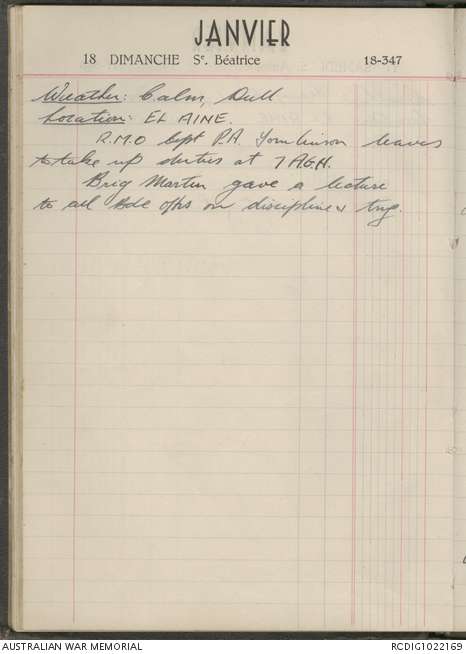 JANVIER
18 DIMANCHE Se. Béatrice 18-347
Weather: Calm, Dull
Location: EL AINE.
R.M.O Capt P.A. Tomlinson leaves
to take up duties at 7 AGH.
Brig Martin gave a lecture
to all Bde offs on discipline & trg.
AUSTRALIAN WAR MEMORIAL
RCDIG1022169